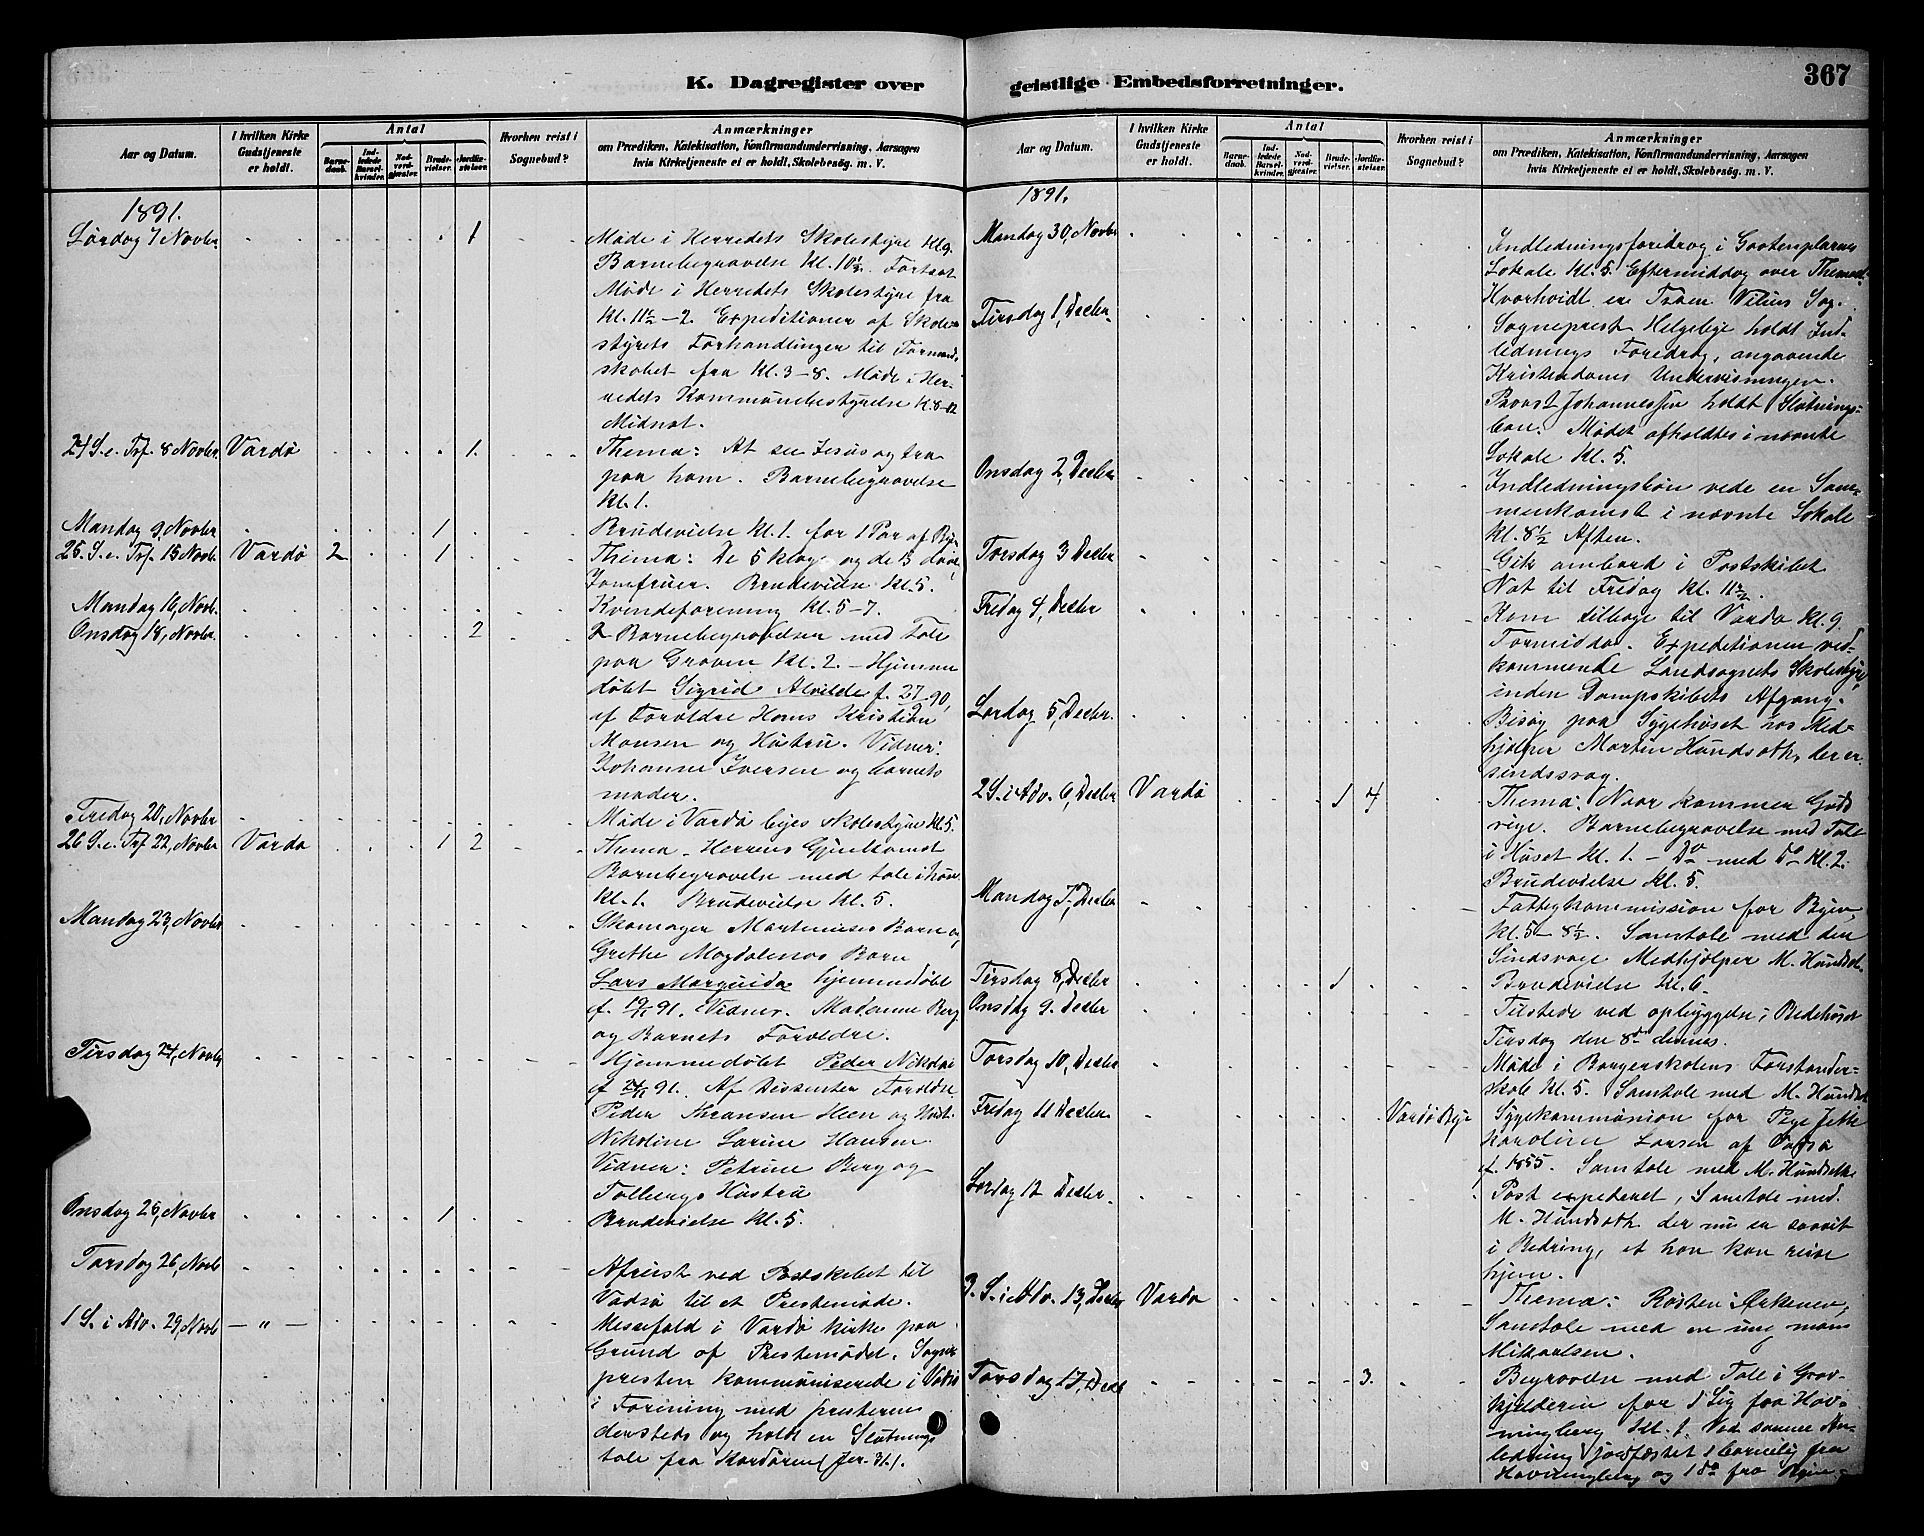 K. Dagregister over
geistlige Embedsforretninger.
367
Aar og Datum.
I hvilken Kirke Gudstjeneste er holdt.
Antal
Barnedaab.
Indledede Barselkvinder.
Nadverdgjæster.
Brudevielser.
Jordfæstelser.
Hvorhen reist i Sognebud?
Anmærkninger
om Prædiken, Katekisation, Konfirmandundervisning, Aarsagen
hvis Kirketjeneste ei er holdt, Skolebesøg. m. V.
1891.
Lørdag 7 Novbr 1 Møde i Herredets Skolestyre Kl 9.
Barnebegravelse Kl. 10½. Fortsat
Møde i Herredets Skolestyre fra
Kl. 11½-2. Expeditioner af Skole-
styrets Forhandlinger til Formand-
skabet fra Kl. 3-8. Møde i Her-
redets Kommunebestyrelse K. 8-12
Midnat.
24 S. e. Trf. 8 Novbr. Vardø 1. Thema: At see Jesus og tro
paa ham. Barnebegravelse
Kl. 1.
Mandag 9, Novbr 1 Brudevielse Kl. 1. for 1 Par af Byen
25. S. e. Trf. 15 Novbr. Vardø 2 1 Thema: De 5 kloge og de 5 daare
Jomfruer. Brudevielse Kl. 5.
Mandag 16, Novbr. Kvindeforening Kl. 5-7.
Onsdag 18, Novbr. 2 2 Barnebegravelser med Tale
paa Graven Kl. 2. - Hjemme
døbt Sigrid Alvilde f. 27/9 90,
af Forældre Hans Kristian
Monsen og Hustru. Vidner:
Johanne Iversen og barnets
moder.
Fredag 20, Novbr Møde i Vardø byes skolestyre Kl. 5.
26 S. e. Trf 22, Novbr Vardø 1 2 Thema - Herrens Gjenkomst
Barnebegravelse med tale i hus
Kl. 1. Brudevielse Kl. 5.
Mandag 23, Novbr Skomager Martenises Barn og
Grethe Magdalenas Barn
Lars Margido hjemmedøbt
f. 19/11 91. Vidner. Madamme Berg
og Barnets Forældre.
Tirsdag 24, Novbr Hjemmedøbt Peder Nikolai
f 24/11 91. Af Dissenter Forældre
Peder Hansen Heen og Hust.
Nikoline Larine Hansen
Vidner: Petrine Berg og
Tolbergs Hustru
Onsdag 25, Novbr 1 Brudevielse Kl. 5.
Torsdag 26, Novb Afreist ved Postskibet til
Vadsø til et Prestemøde.
1 S. i Adv. 29, Novb - " - Messefald i Vardø kirke paa
Grund af Prestemødet. Sogne
presten kommuniserede i Vadsø
i Forening med presterne
densteds og holdt en Slutnings
tale fra Kordøren (Jer. 31).
Aar og Datum.
I hvilken Kirke Gudstjeneste er holdt.
Antal
Barnedaab.
Indledede Barselkvinder.
Nadverdgjæster.
Brudevielser.
Jordfæstelser.
Hvorhen reist i Sognebud?
Anmærkninger
om Prædiken, Katekisation, Konfirmandundervisning, Aarsagen
hvis Kirketjeneste ei er holdt, Skolebesøg. m. V.
1891.
Mandag 30, Novbr Indledningsforedrag i Gootemplarnes
Lokale Kl. 5. Eftermiddag over Themaet
Hvorhvidt er Troen Viliens Sag.
Tirsdag 1, Decbr. Sogneprest Helgebye holdt Ind-
lednings Foredrag, angaaende
Kristendoms Undervisningen.
Provst Johannessen holdt Slutnings-
bøn. Mødet afholdtes i nævnte
Lokale Kl. 5.
Onsdag 2, Decbr. Indledningsbøn vede en Sam-
menkomst i nævnte Lokale
Kl. 8½ Aften.
Torsdag 3 Decbr Gik ombord i Postskibet
Nat til Fredag Kl. 11½.
Fredag 4, Decbr Kom tilbage til Vardø Kl. 9
Formiddag. Expeditioner ved-
kommende Landsognets Skolestyre
inden Dampskibets Afgang.
Lørdag 5, Decbr. Besøg paa Sygehuset hos Med-
hjælper Martin Hundsoth, der er
sindssvag.
2 S. i Adv. 6, Decbr Vardø 1 4 Thema: Naar kommer Guds
rige. Barnebegravelse med Tale
i Huset Kl. 1. - do med do Kl. 2.
Brudevielse Kl. 5.
Mandag 7, Decbr Fattigkommission for Byen
Kl. 5-8½. Samtale med den
Sindsvage Medhjælper M. Hundsoth
Tirsdag 8, Decbr 1 Brudevielse Kl. 6
Onsdag 9. Decbr Tilstede ved opbyggelse i Bedehuset
Tirsdag den 8de dennes.
Torsdag 10, Decbr Møde i Borgerskolens Forstander-
skab Kl. 5. Samtale med M. Hundsoth
Fredag 11 Decbr. Vardø Bye Sygekommunion for Pige Jette
Karoline Larsen af Vadsø
f. 1855. Samtale med M. Hundsoth
Lørdag 12 Decbr. Post expederet, Samtale med
M. Hundsoth der nu er saavit
i Bedring, at han kan reise
hjem.
3. S. i Adv. 13, Decbr Vardø Thema: Røsten i Ørkenen,
Samtale med en ung mann
Mikaelsen.
Torsdag 17, Decb 3. Begravelse med Tale i Grav-
kjelderen for 1 Lig fra Hav-
ningberg Kl. 1. Ved samme An-
ledning jordfæstet 1 barnelig fra
Havningberg og 1 do fra Byen.